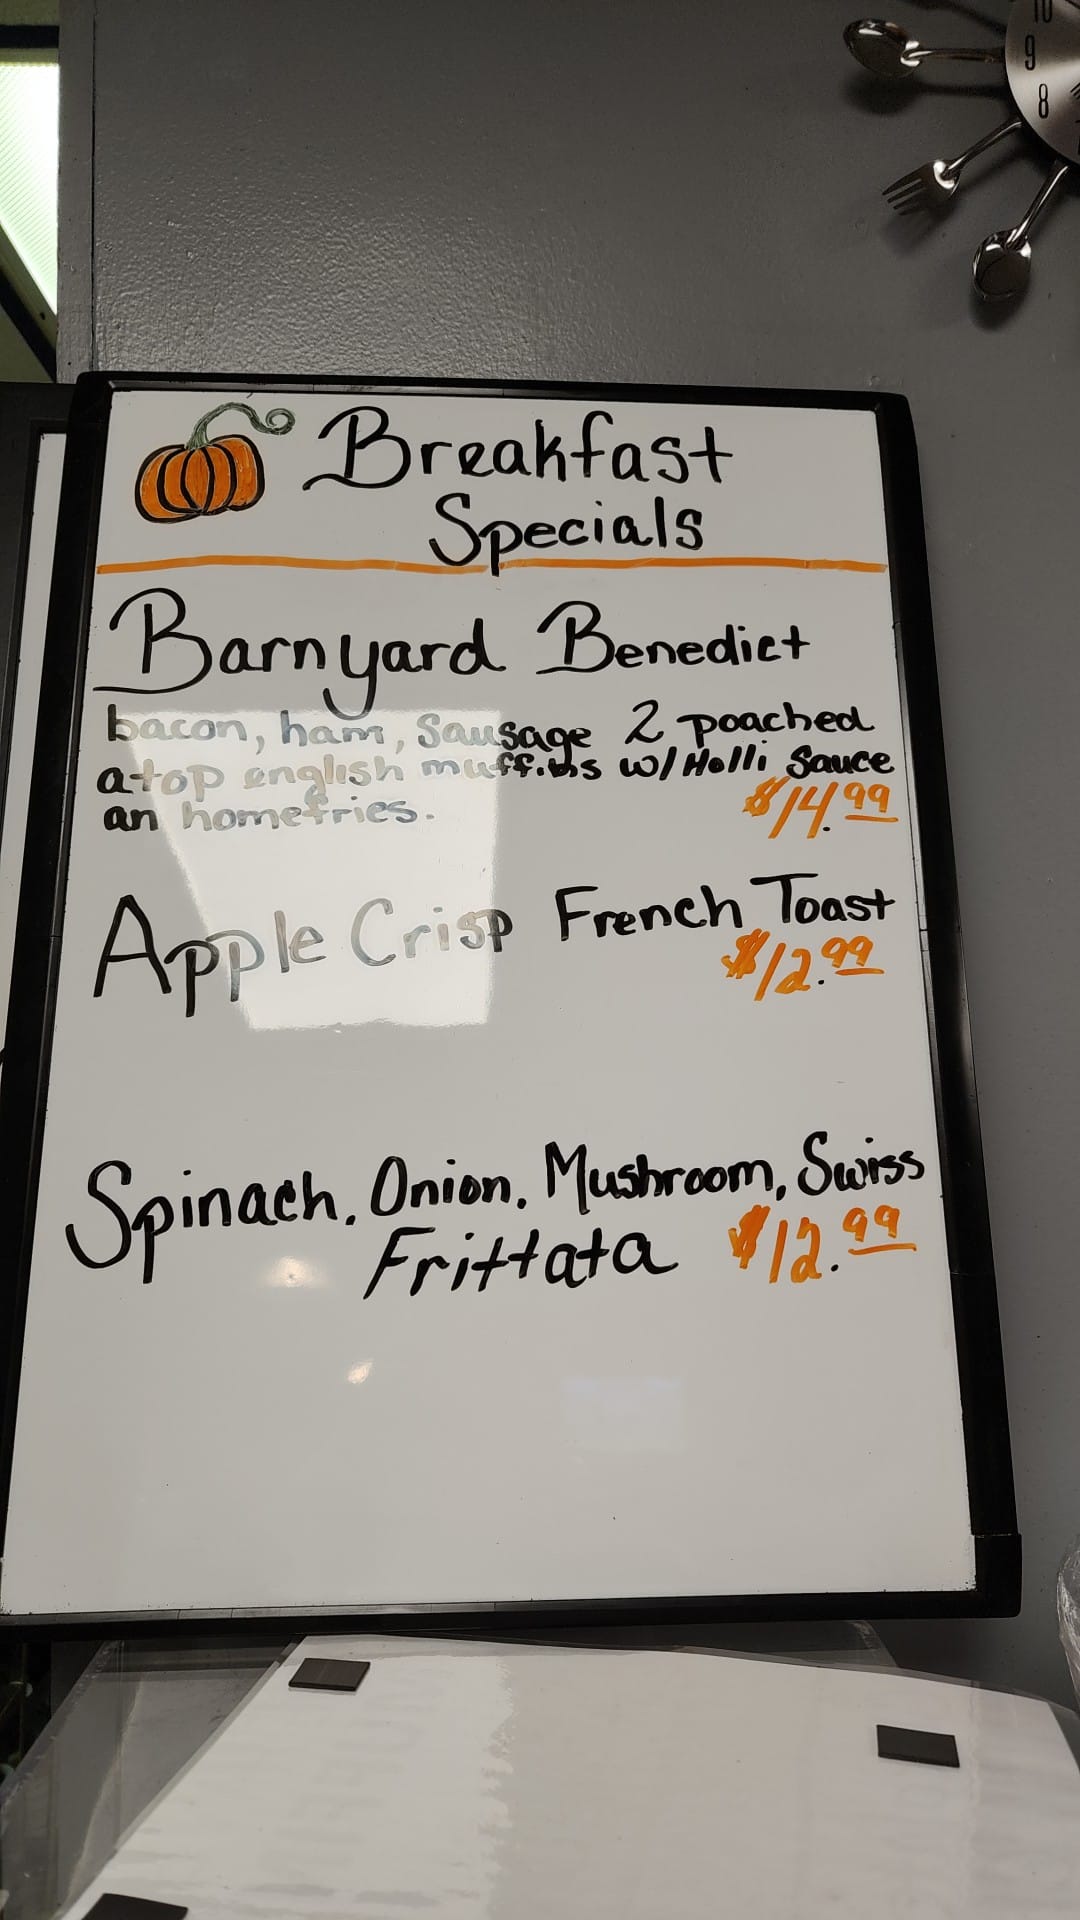 10
9
8
Breakfast
Specials
Barnyard Benedict
bacon, ham, Sausage 2 poached
atop english muffins w/ Holli Sauce
an homefries.
$14.99
Apple Crisp French Toast
$12.99
Spinach, Onion, Mushroom, Swiss
Frittata $12.99